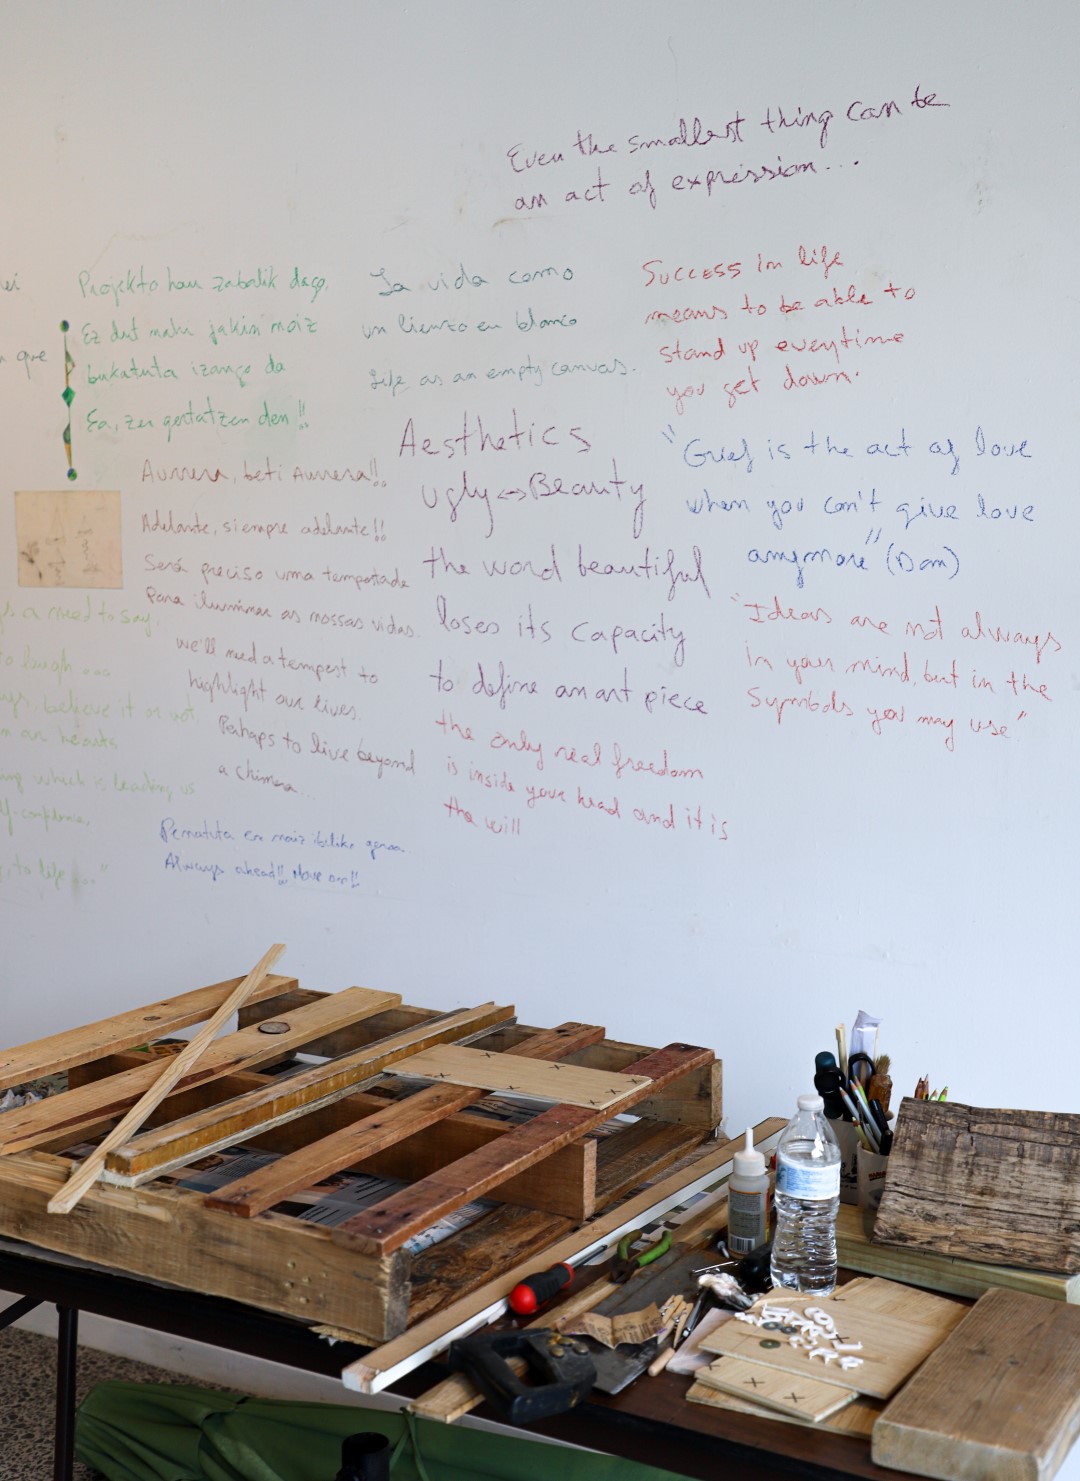 Even the smallest thing can be
an act of expression...
Projekto hau zabalik dago.
Ez dut nahi jakin noiz
bukatuta izango da
Ea, zer gertatzen den!!
que
La vida como
un lienzo en blanco
Life as an empty canvas.
Success in life
means to be able to
stand up everytime
you get down.
Aurrera, beti Aurrera!!
Adelante, siempre adelante!!
Será preciso uma tempestade
para iluminar as nossas vidas.
we'll need a tempest to
highlight our lives.
Perhaps to live beyond
a chimera...
Aesthetics
ugly↔Beauty
the word beautiful
loses its capacity
to define an art piece
the only real freedom
is inside your head and it is
the will
"Grief is the act of love
when you can't give love
anymore" (Dom)
"Ideas are not always
in your mind, but in the
Symbols you may use"
a need to say
to laugh ...
believe it or not
our hearts
which is leading us
to life ..."
Always ahead!! Move on!!